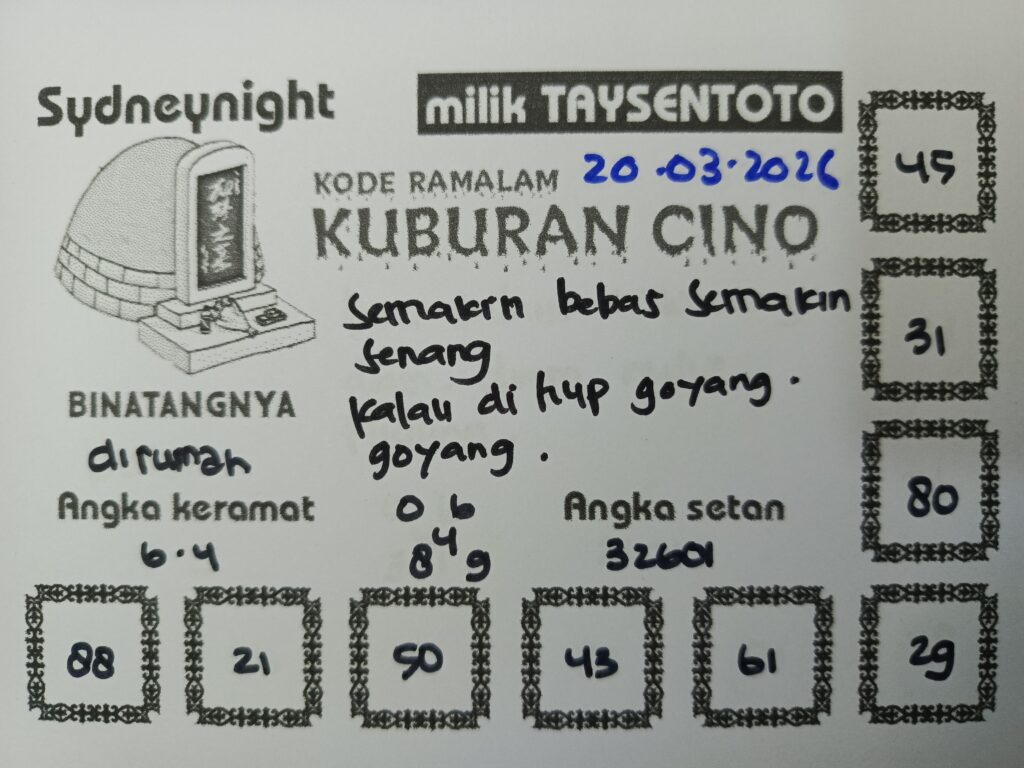 Sydneynight
milik TAYSENTOTO
KODE RAMALAM 20.03.2026
KUBURAN CINO
semakin bebas semakin
senang
kalau di hup goyang.
goyang.
BINATANGNYA
dirumah
Angka keramat
6.4
0 6
4
8 9
Angka setan
32601
45
31
80
88 21 50 43 61 29